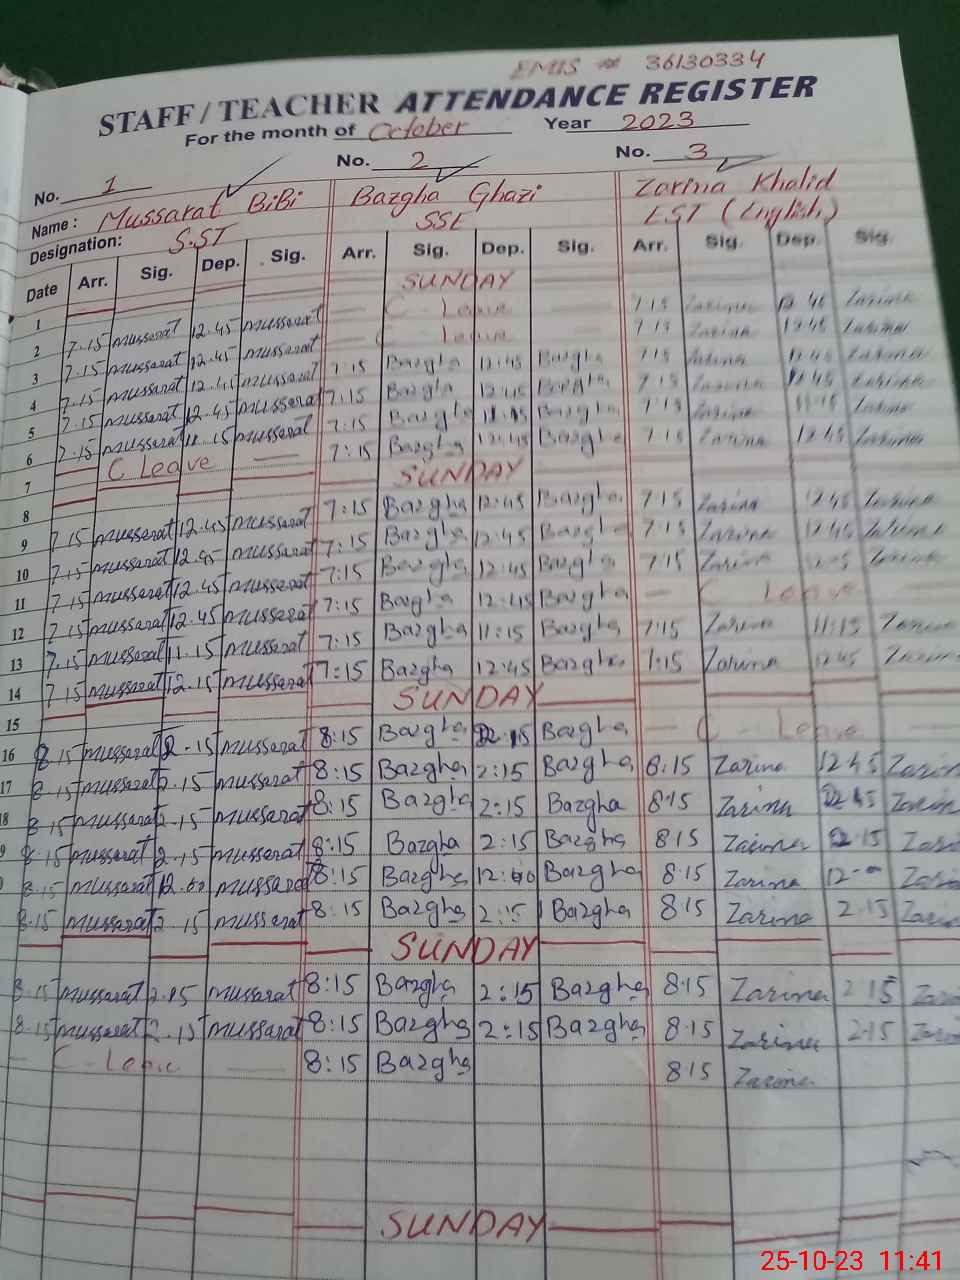 EMIS # 36130334
STAFF / TEACHER ATTENDANCE REGISTER
For the month of October Year 2023
No. 1 No. 2 No. 3
Name: Mussarat BiBi Bazgha Ghazi Zarina Khalid
Designation: S.ST SSE EST (English)
Date Arr. Sig. Dep. Sig. Arr. Sig. Dep. Sig. Arr. Sig. Dep. Sig.
1 SUNDAY
2 7.15 mussarat 12.45 mussarat C Leave 7 15 Zarina 12 45 Zarina
3 7.15 mussarat 12.45 mussarat C Leave 7 15 Zarina 12 45 Zarina
4 7.15 mussarat 12.45 mussarat 7:15 Bazgha 12:45 Bazgha 7 15 Zarina 12 45 Zarina
5 7.15 mussarat 12.45 mussarat 7:15 Bazgha 12:45 Bazgha 7 15 Zarina 12 45 Zarina
6 7.15 mussarat 11.15 mussarat 7:15 Bazgha 11:15 Bazgha 7 15 Zarina 11 15 Zarina
7 C Leave 7:15 Bazgha 12:45 Bazgha 7 15 Zarina 12 45 Zarina
8 SUNDAY
9 7 15 mussarat 12.45 mussarat 7:15 Bazgha 12:45 Bazgha 7 15 Zarina 12 45 Zarina
10 7.15 mussarat 12.45 mussarat 7:15 Bazgha 12:45 Bazgha 7 15 Zarina 12 45 Zarina
11 7.15 mussarat 12.45 mussarat 7:15 Bazgha 12:45 Bazgha 7:15 Zarina Zarina
12 7.15 mussarat 12.45 mussarat 7:15 Bazgha 12:45 Bazgha C Leave
13 7.15 mussarat 11.15 mussarat 7:15 Bazgha 11:15 Bazgha 7:15 Zarina 11:15 Zarina
14 7 15 mussarat 12.15 mussarat 7:15 Bazgha 12:45 Bazgha 7:15 Zarina 12 45 Zarina
15 SUNDAY
16 8 15 mussarat 2.15 mussarat 8:15 Bazgha 2:15 Bazgha C Leave
17 8.15 mussarat 2.15 mussarat 8:15 Bazgha 2:15 Bazgha 8:15 Zarina 12 45 Zarin
18 8.15 mussarat 2.15 mussarat 8:15 Bazgha 2:15 Bazgha 8:15 Zarina 12 45 Zarin
9 8 15 mussarat 2.15 mussarat 8:15 Bazgha 2:15 Bazgha 8:15 Zarina 2.15 Zari
8.15 mussarat 12.00 mussarat 8:15 Bazgha 12:00 Bazgha 8.15 Zarina 12-00 Zari
8.15 mussarat 2.15 mussarat 8:15 Bazgha 2:15 Bazgha 8:15 Zarina 2.15 Zari
SUNDAY
8.15 mussarat 2.15 mussarat 8:15 Bazgha 2:15 Bazgha 8.15 Zarina 2 15 Zari
8.15 mussarat 2.15 mussarat 8:15 Bazgha 2:15 Bazgha 8.15 Zarina 2.15 Zari
C-Leave 8:15 Bazgha 8.15 Zarina
SUNDAY
25-10-23 11:41